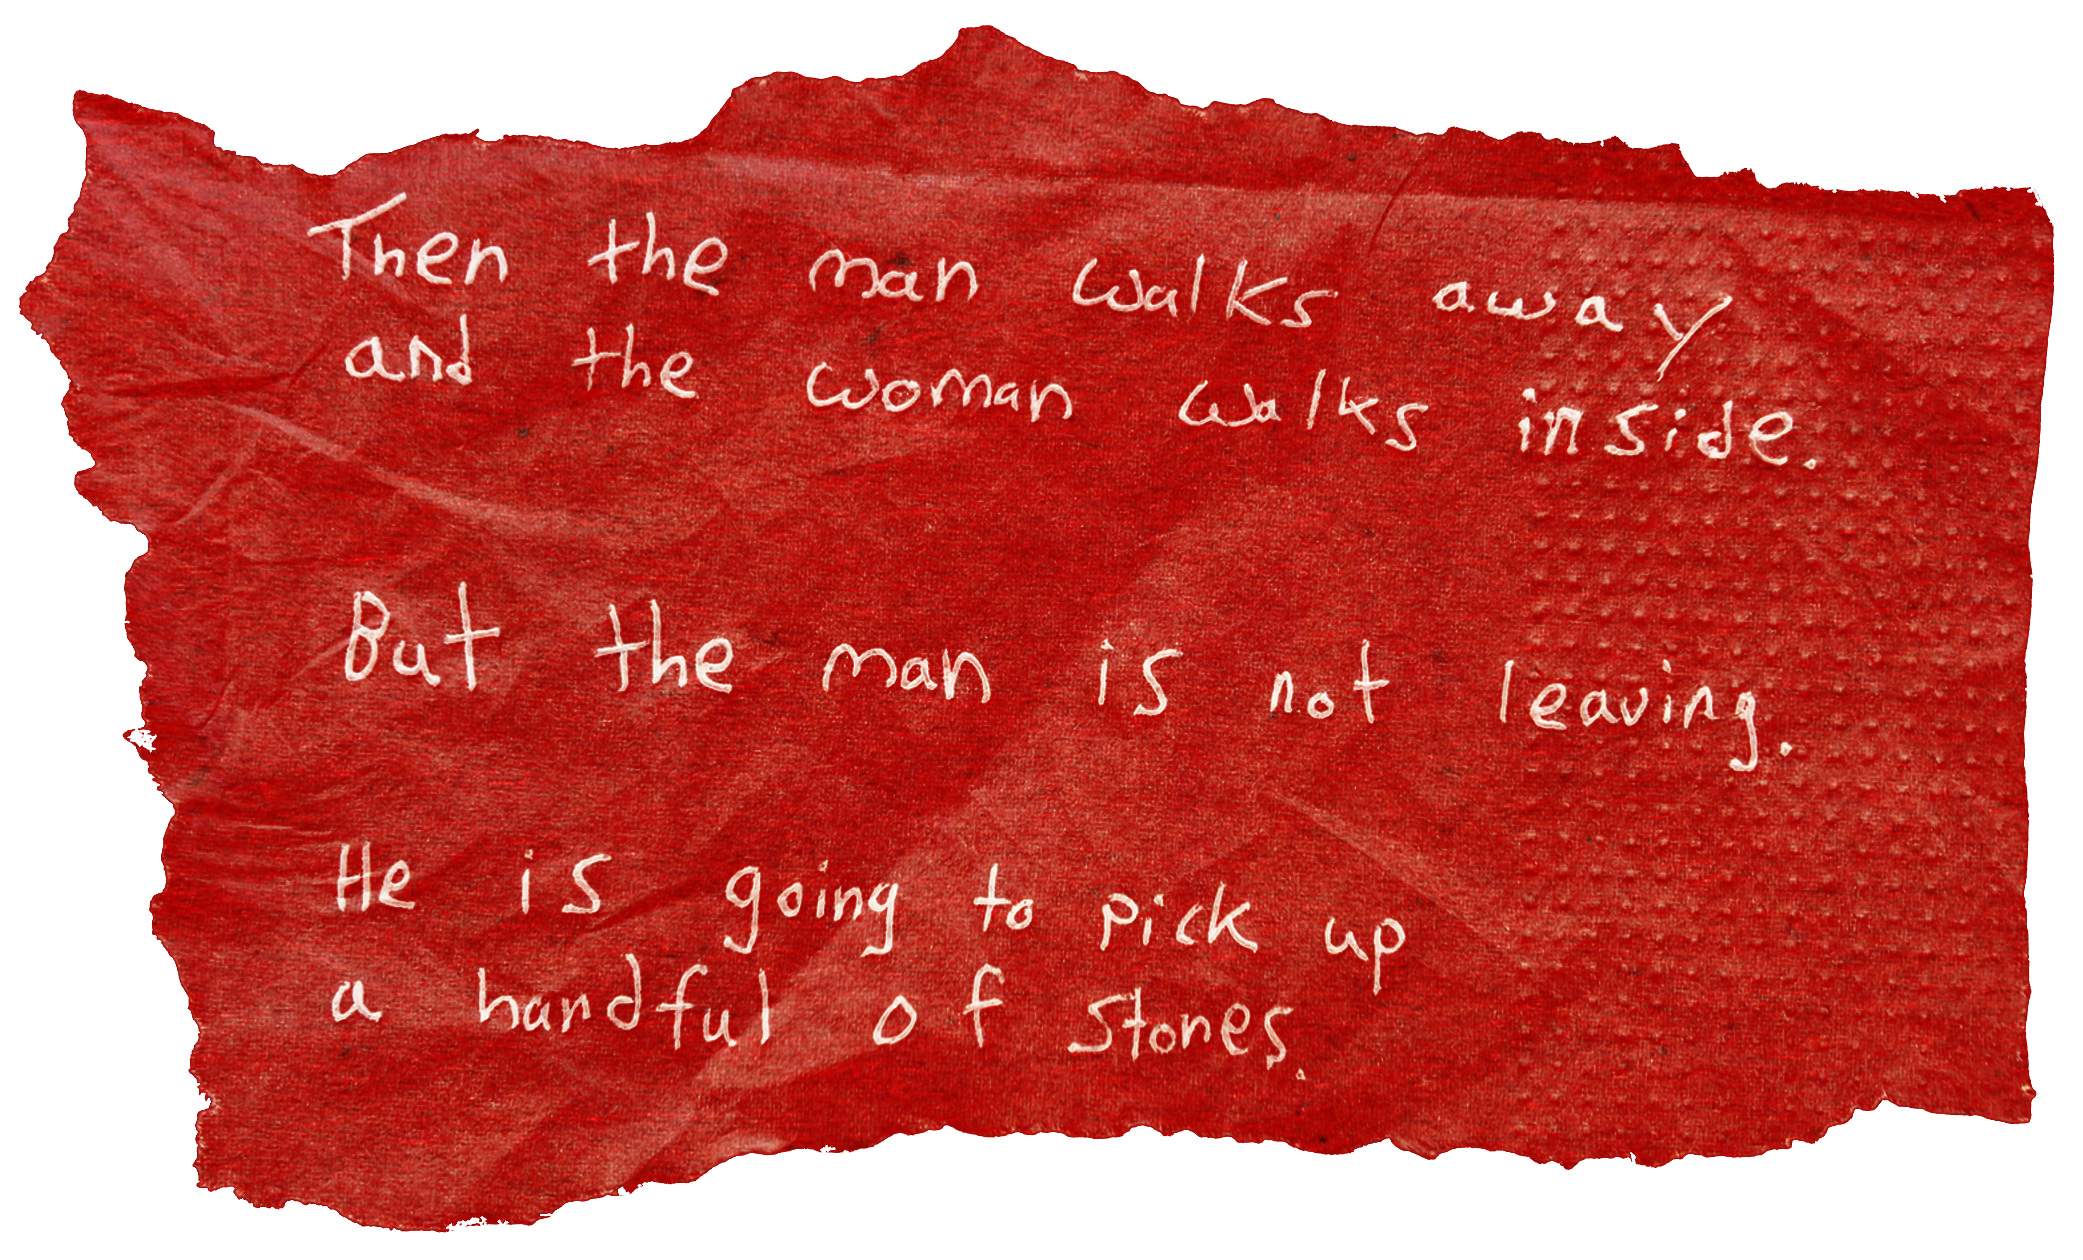 Then the man walks away
and the woman walks inside.
But the man is not leaving.
He is going to pick up
a handful of stones.